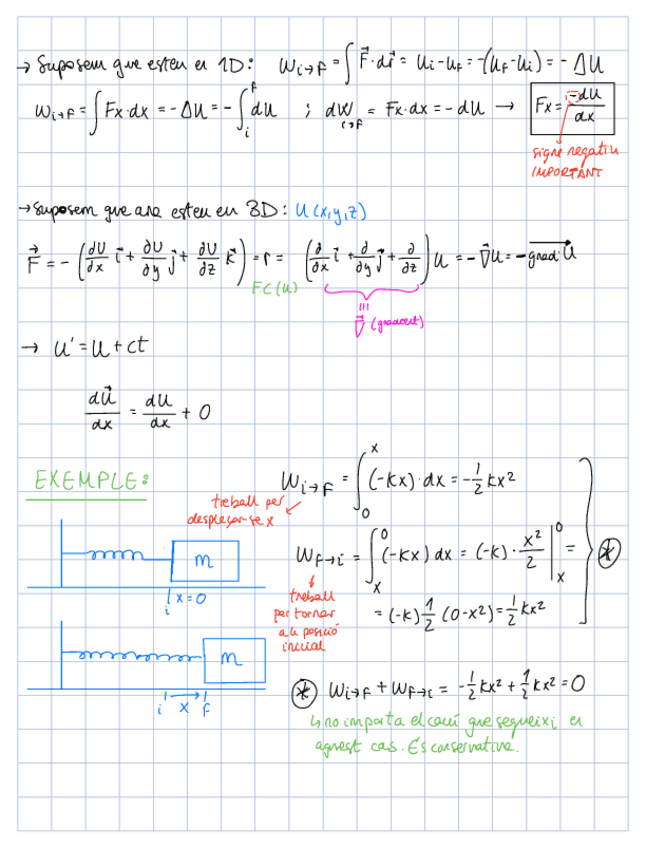 → Suposem que esteu en 1D: Wi→F = ∫ F⃗·dr⃗ = Ui - UF = -(UF - Ui) = - ΔU
Wi→F = ∫ Fx·dx = -ΔU = -∫ᵢᶠ dU ; dW i→F = Fx·dx = -dU → Fx = -dU/dx
signe negatiu
IMPORTANT
→ Suposem que ara esteu en 3D: U(x,y,z)
F⃗ = - (dU/dx i⃗ + ∂U/∂y j⃗ + ∂U/∂z k⃗) = (∂/∂x i⃗ + ∂/∂y j⃗ + ∂/∂z) U = -∇⃗U = -grad U
F.C (U)
≡
∇⃗ (gradient)
→ U' = U + ct
dU⃗/dx = dU/dx + 0
EXEMPLE:
Wi→F = ∫₀ˣ (-kx)·dx = -1/2 kx²
treball per
desplaçar-se x
WF→i = ∫ₓ⁰ (-kx) dx = (-k)· x²/2 |ₓ⁰ =
= (-k) 1/2 (0-x²) = 1/2 kx²
*
treball
per tornar
a la posició
inicial
m
i x=0
m
i x f
* Wi→F + WF→i = -1/2 kx² + 1/2 kx² = 0
↳ no importa el camí que segueixi en
aquest cas. És conservativa.